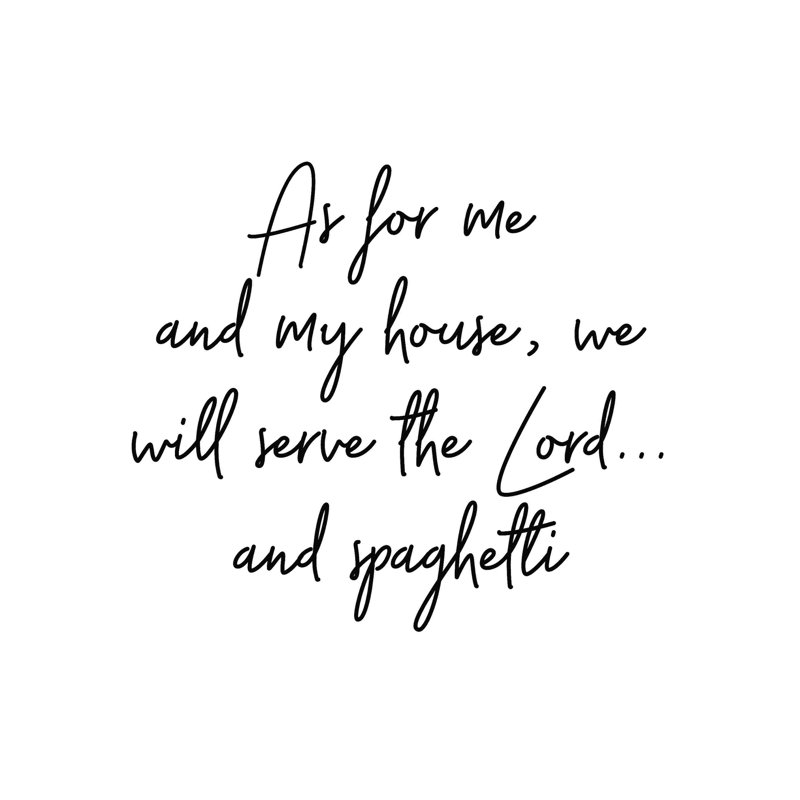 As for me
and my house, we
will serve the Lord...
and spaghetti